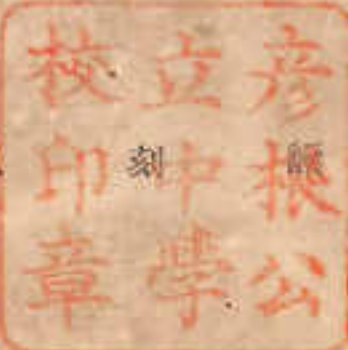 彦根公
立中學
校印章
刻